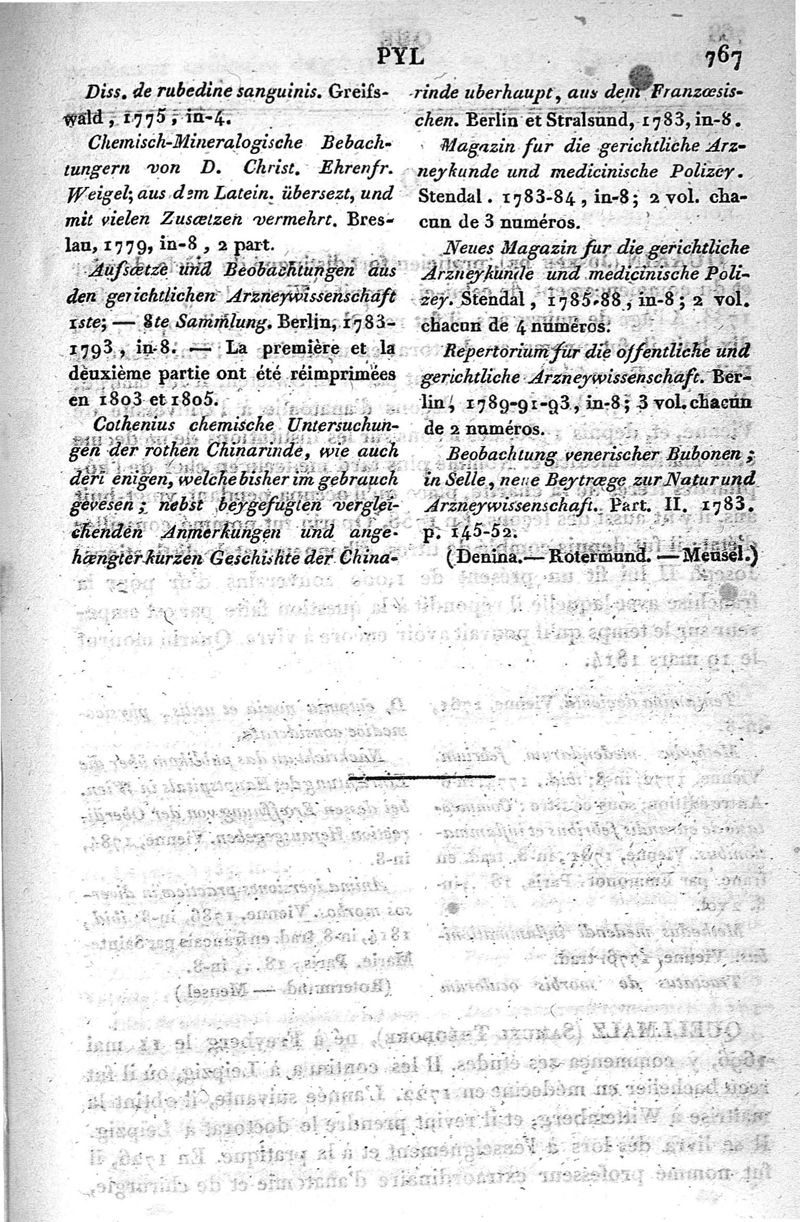 PYL
767
Diss. de rubedine sanguinis. Greifs-
wald, 1775, in-4.
Chemisch-Mineralogische Bebach-
tungern von D. Christ. Ehrenfr.
Weigel; aus dem Latein. übersezt, und
mit vielen Zusœtzen vermehrt. Bres-
lau, 1779, in-8, 2 part.
Aufsœtze und Beobachtungen aus
den gerichtlichen Arzneywissenschaft
1ste; — 8te Sammlung. Berlin, 1783-
1793, in-8. — La première et la
deuxième partie ont été réimprimées
en 1803 et 1805.
Cothenius chemische Untersuchun-
gen der rothen Chinarinde, wie auch
deri enigen, welche bisher im gebrauch
gevesen; nebst beygefugten verglei-
chenden Anmerkungen und ange-
hœngter kurzen Geschishte der China-
rinde uberhaupt, aus dem Franzœsis-
chen. Berlin et Stralsund, 1783, in-8.
Magazin fur die gerichtliche Arz-
neykunde und medicinische Polizey.
Stendal. 1783-84, in-8; 2 vol. cha-
cun de 3 numéros.
Neues Magazin fur die gerichtliche
Arzneykunde und medicinische Poli-
zey. Stendal, 1785-88, in-8; 2 vol.
chacun de 4 numéros.
Repertorium fur die offentliche und
gerichtliche Arzneywissenschaft. Ber-
lin, 1789-91-93, in-8; 3 vol. chacun
de 2 numéros.
Beobachtung venerischer Bubonen;
in Selle, neue Beytrœge zur Natur und
Arzneywissenschaft. Part. II. 1783.
p. 145-52.
(Denina. — Rotermund. — Meusel.)